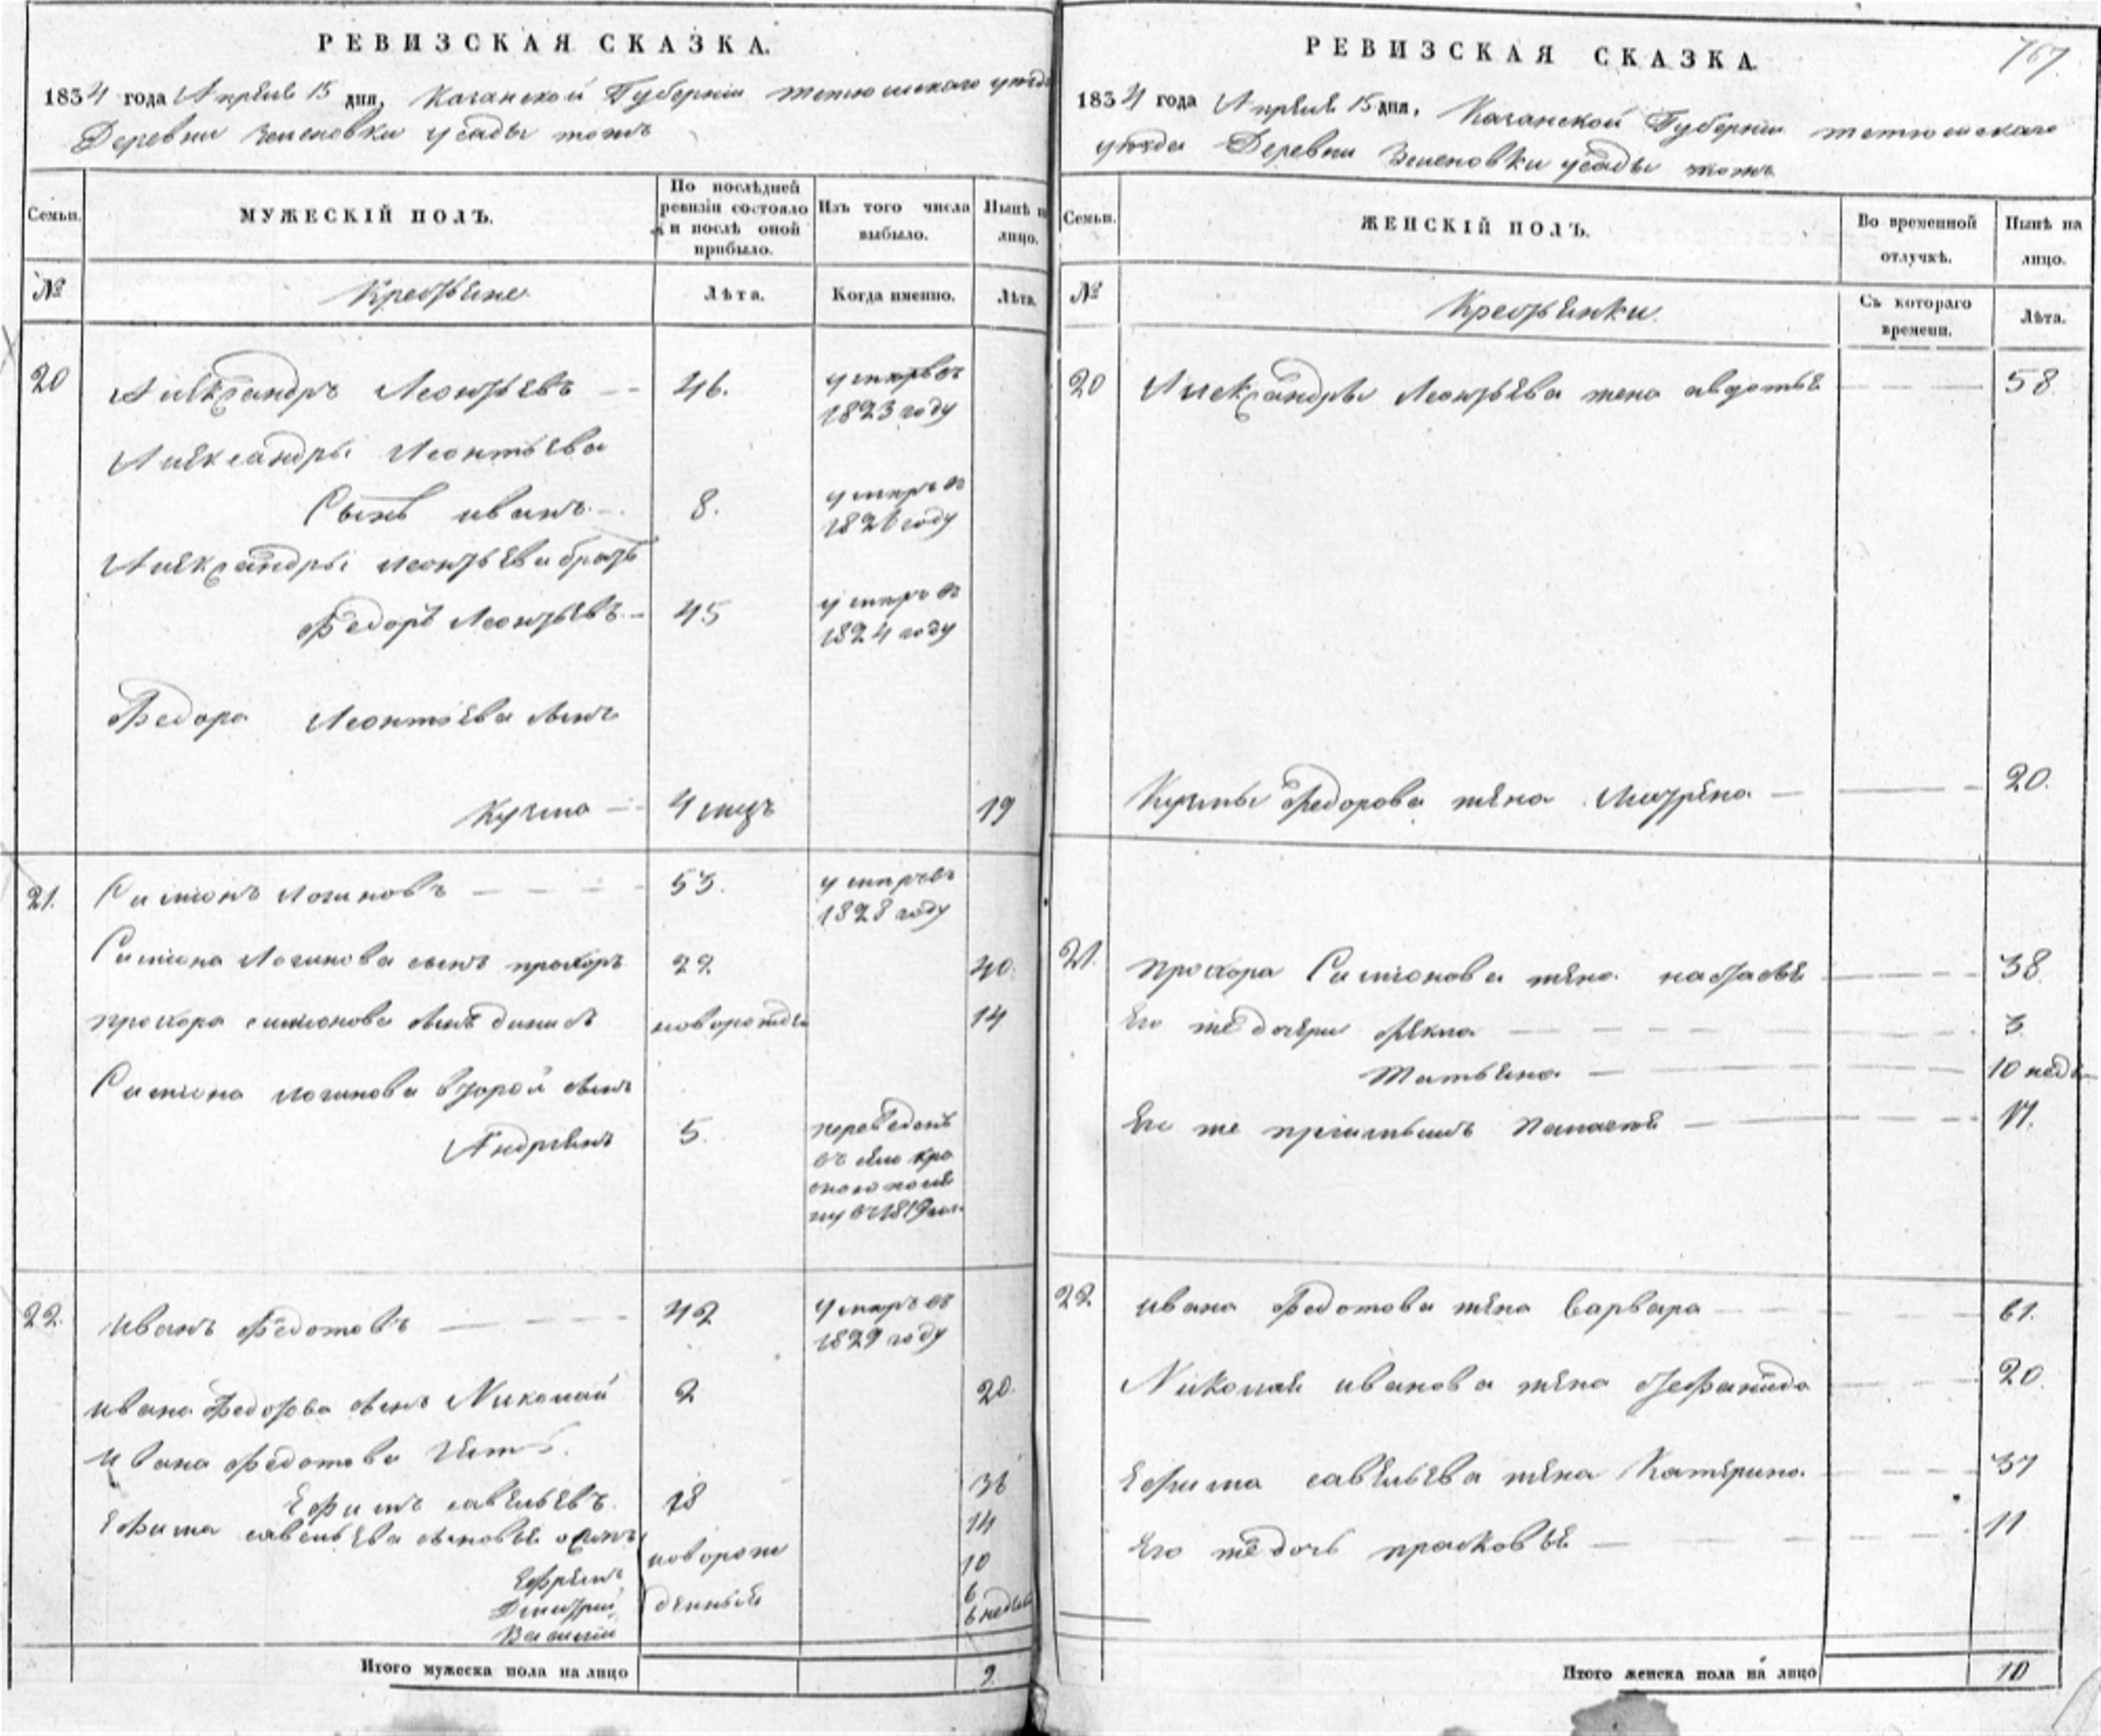 РЕВИЗСКАЯ СКАЗКА.
1834 года Апреля 15 дня, Казанской Губернии тетюшскаго уезда
Деревни Зеленовки усады тожъ
Семьи.
МУЖЕСКІЙ ПОЛЪ.
По послѣдней ревизіи состояло и послѣ оной прибыло.
Изъ того числа выбыло.
Нынѣ на лицо.
№
Крестьяне
Лѣта.
Когда именно.
Лѣта.
20
Александръ Леонтьевъ 46. умеръ въ
1823 году
Александры Леонтьева
Сынъ иванъ 8. умеръ въ
1826 году
Александры Леонтьева братъ
Федоръ Леонтьевъ 45 умеръ въ
1824 году
Федора Леонтьева сынъ
Кузма 4 мцъ 19
21. Симионъ логиновъ 53. умеръ въ
1828 году
Симиона Логинова сынъ прохоръ 22 40.
прохора симионова сынъ динисъ новорожде 14
Симиона логинова второй сынъ
Андреянъ 5. переведенъ
въ село кра
сною поля
ну в 1819
22. иванъ Федотовъ 42 умеръ въ
1829 году
ивана Федотова сынъ Николай 2 20.
ивана Федотова
Ефимъ савельевъ 18 36
Ефима савельева сыновья осипъ 14
Ефремъ новорож 10
Дмитрий денныя 6
Василий 6 недель
Итого мужеска пола на лицо 9
767.
РЕВИЗСКАЯ СКАЗКА.
1834 года Апреля 15 дня, Казанской Губернии тетюшскаго
уезда Деревни Зеленовки усады тожъ
Семьи.
ЖЕНСКІЙ ПОЛЪ.
Во временной отлучкѣ.
Нынѣ на лицо.
№
Крестьянки
Съ котораго времени.
Лѣта.
20 Александры Леонтьева жена авдотья 58
Кузмы Федорова жена Матрена 20.
21. прохора Симионова жена настасья 38
Его же дочери Фекла 3.
Татьяна 10 неде
Его же 17.
22 ивана Федотова жена Варвара 61.
Николая иванова жена 20
Ефима савельева жена Катерина 37
Его же дочь прасковья 11
Итого женска пола на лицо 10